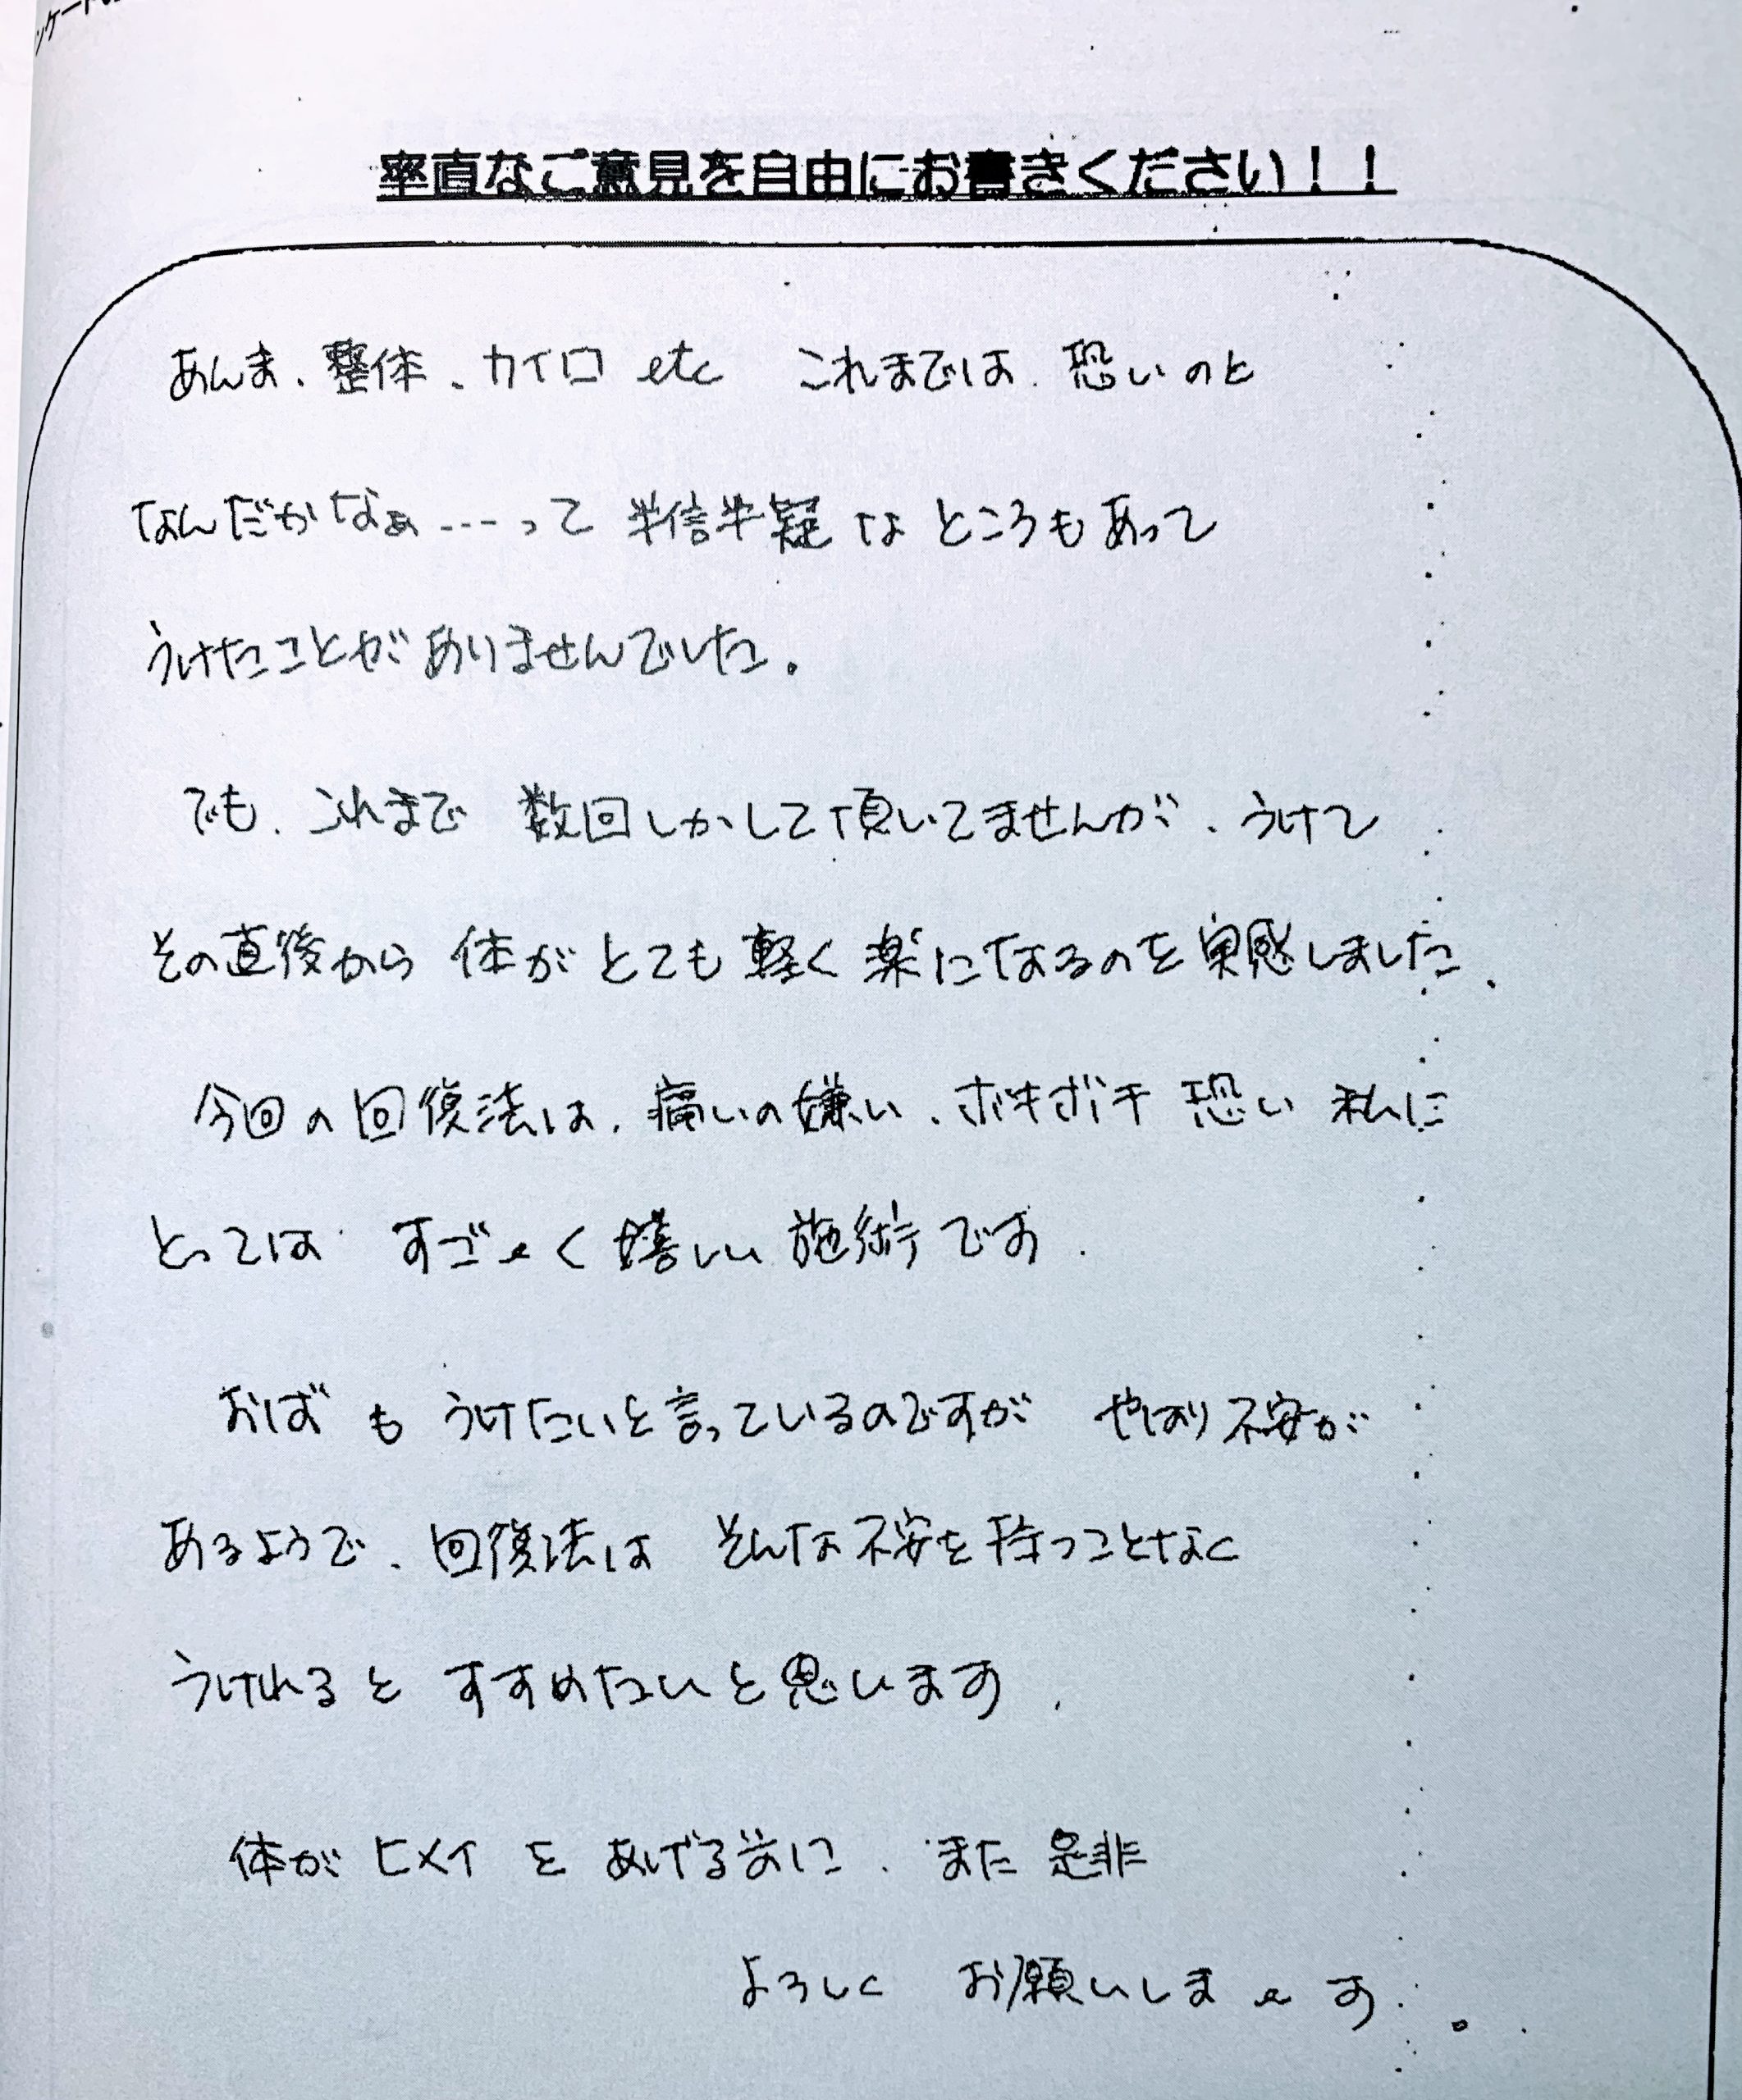 率直なご意見を自由にお書きください！！
あんま、整体、カイロ etc これまでは、恐いのと
なんだかなぁ…って 半信半疑なところもあって
うけたことがありませんでした。
でも、これまで 数回しかして頂いてませんが、うけて
その直後から 体がとても軽く楽になるのを実感しました、
今回の回復法は、痛いの嫌い、ボキボキ恐い 私に
とっては すご〜く嬉しい施術です.
おばも うけたいと言っているのですが やはり不安が
あるようで、回復法は そんな不安を持つことなく
うけれると すすめたいと思います.
体がヒメイをあげる前に、また是非
よろしく お願いしま〜す。